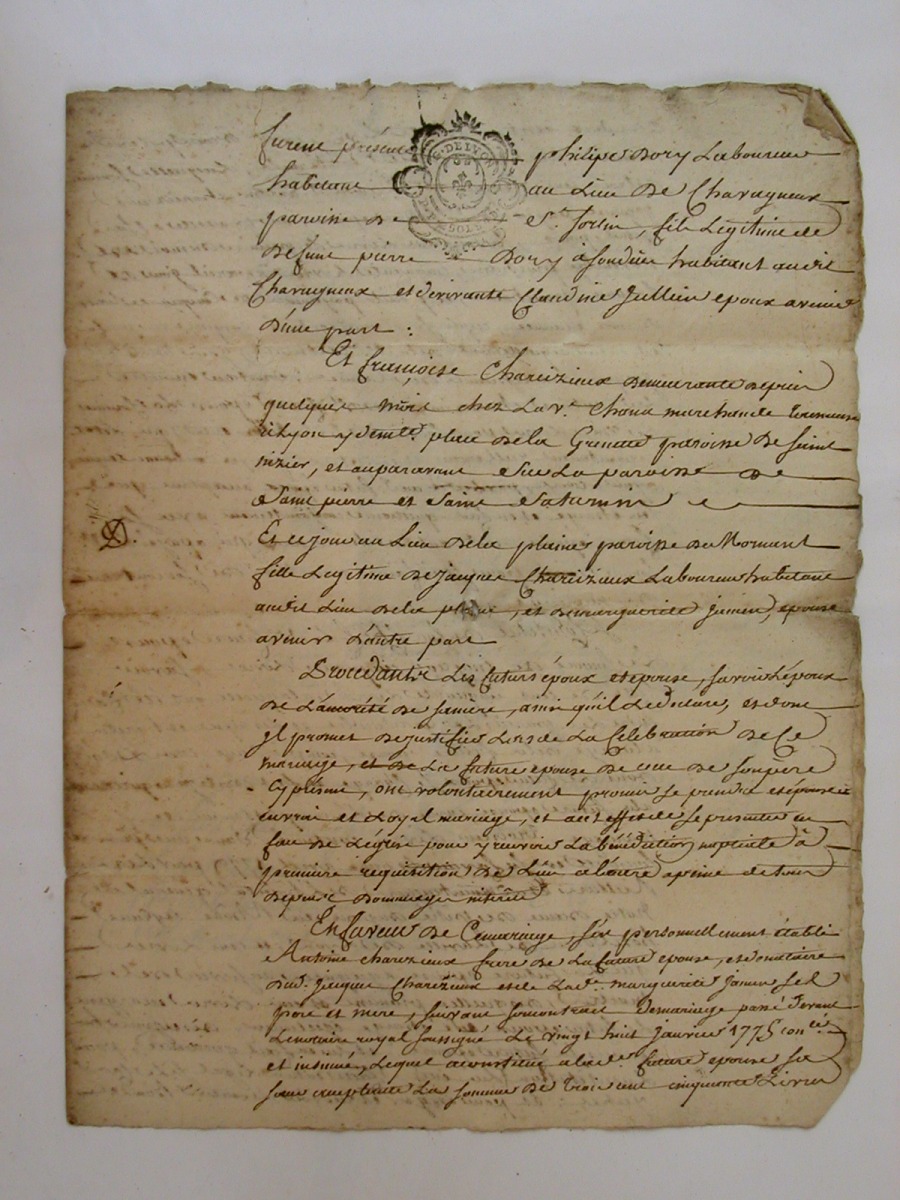 furent présents philipe Bory Laboureur
habitant au Lieu De Chavagneux
paroisse de St. Jorlin, fils Legitime de
Defunt pierre Bory à son deces habitant audit
Chavagneux et devivante Claudine Jullien epoux avenir
D'une part :
Et françoise Charézieux demeurante depuis
quelques mois chez La ve. marchande
à Lyon y demte. place de la Grenette paroisse De Saint
nizier, et auparavant Sur La paroisse de
Saint pierre et Saint Saturnin
D.
Et ce jour au Lieu dela plaine paroisse de Mornant
fille Legitime de jacques Charézieux Laboureur habitant
audit Lieu dela plaine, et de marguerite jamen, epouse
avenir D'autre part
Procedants Les futurs époux et epouse, savoir L'époux
de L'autorité de samere, ainsi qu'il Le declare, et dont
jl promet dejustifier Lors de La Célébration de Ce
mariage, et de La future epouse de celle de sonpère
Cy présent, ont volontairement promis se prendre et épouser
en vrai et Loyal mariage, et à cet effet de se presenter en
face de L'église pour y recevoir La bénédiction nuptiale à
premiere requisition de L'un à L'autre apeine de tous
depens Dommages interêts
En faveur de Ce mariage, s'est personnellement établi
Antoine charézieux frere de La future epouse, et donataire
dud. jacques Charézieux et de Lade. marguerite jamen ses
pere et mere, suivant soncontrat demariage passé devant
Lenotaire royal soussigné Le vingt huit janvier 1775 conlé
et insinué, Lequel aconstitué alade. future epouse sa
sœur acceptante La somme De trois cent cinquante Livres